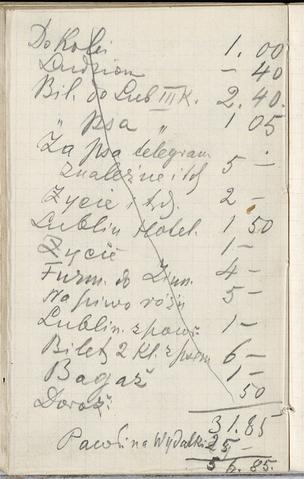 Do Kolei 1. 00
Ludziom – 40
Bil. do Lub III K. 2. 40.
" psa " 1 05
Za psa telegram
znalezne i td 5 –
Życie i t.d. 2 –
Lublin Hotel. 1 50
Życie 1 –
Furm. do Zam. 4 –
Na piwo różn 5 –
Lublin. z pow. 1 –
Bilet 2 Kl. z pow 6 –
Bagaż 1 –
Doroż. 50
31.85
Pawłi na Wydatki 25 –
56.85.